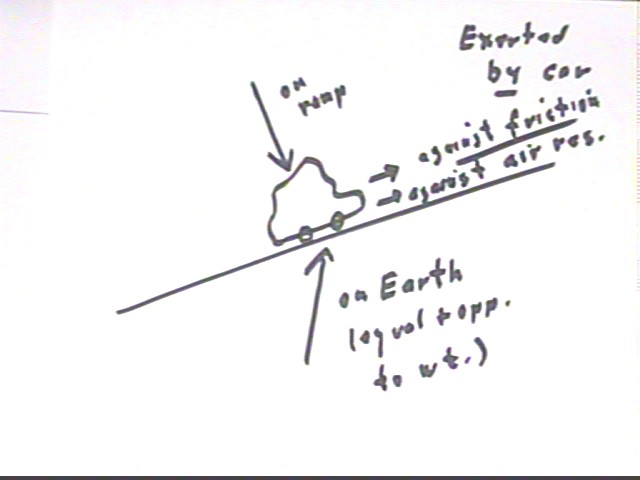 Exerted
by car
on
ramp
against friction
against air res.
on Earth
(equal + opp.
to wt.)